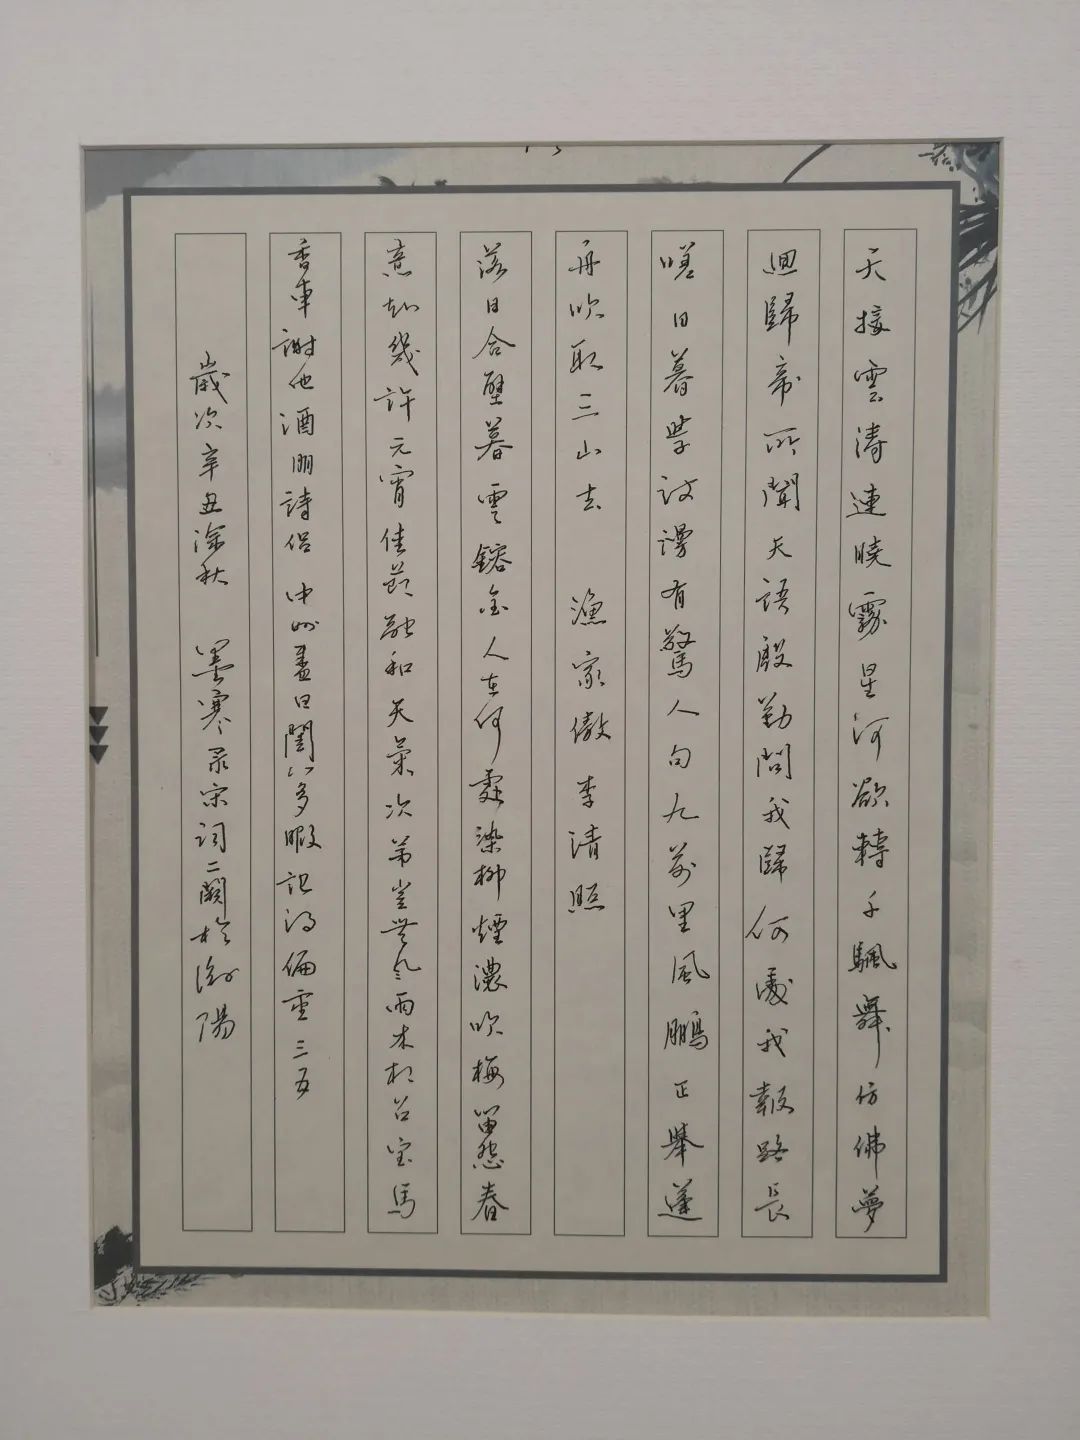 天接雲濤連曉霧星河欲轉千颿舞仿佛夢
迴歸帝所聞天語殷勤問我歸何處我報路長
嗟日暮學詩謾有驚人句九萬里風鵬正舉蓬
再吹取三山去 漁家傲 李清照
落日合璧暮雲鎔金人在何處染柳煙濃吹梅留怨春
意知幾許元宵佳節融和天氣次第豈無風雨來相召宝馬
香車謝他酒朋詩侶中州盛日閨門多暇記得偏重三五
歲次辛丑深秋 墨寒录宋词二闋於衡陽